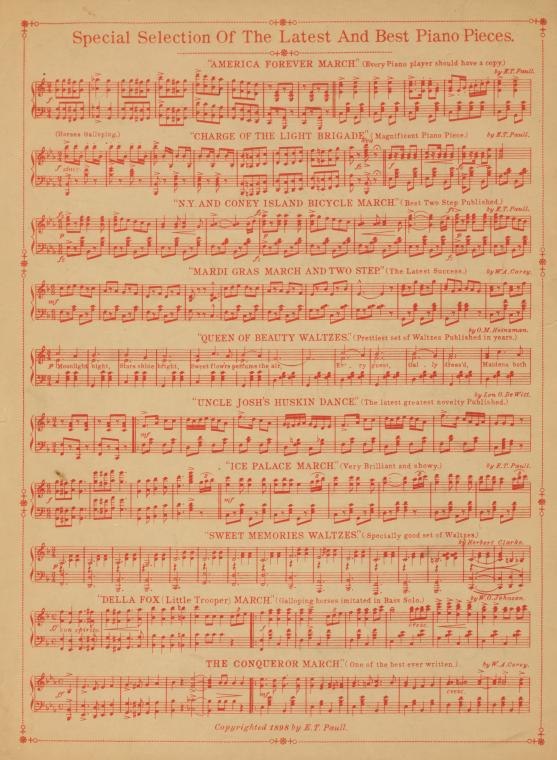 Special Selection Of The Latest And Best Piano Pieces.
"AMERICA FOREVER MARCH." (Every Piano player should have a copy.)
by E.T. Paull.
ff
(Horses Galloping.) "CHARGE OF THE LIGHT BRIGADE" (Magnificent Piano Piece.) by E.T. Paull.
"N.Y. AND CONEY ISLAND BICYCLE MARCH." (Best Two Step Published.)
by E.T. Paull.
"MARDI GRAS MARCH AND TWO STEP." (The Latest Success.) by W.A. Corey.
mf
by O.M. Heinzman.
"QUEEN OF BEAUTY WALTZES." (Prettiest set of Waltzes Published in years.)
p Moonlight night, Stars shine bright, Sweet flow'rs perfume the air, Ev'ry guest, Gai ly dress'd, Maidens both
by Len O. DeWitt.
"UNCLE JOSH'S HUSKIN DANCE." (The latest greatest novelty Published.)
mf
"ICE PALACE MARCH." (Very Brilliant and showy.) by E.T. Paull.
mf
"SWEET MEMORIES WALTZES." (Specially good set of Waltzes.)
by Herbert Clarke.
"DELLA FOX (Little Trooper) MARCH." (Galloping horses imitated in Bass Solo.) by W.O. Johnson.
con spirito.
cresc.
THE CONQUEROR MARCH." (One of the best ever written.) by W.A. Corey.
ff
mf
cresc.
Copyrighted 1898 by E.T. Paull.